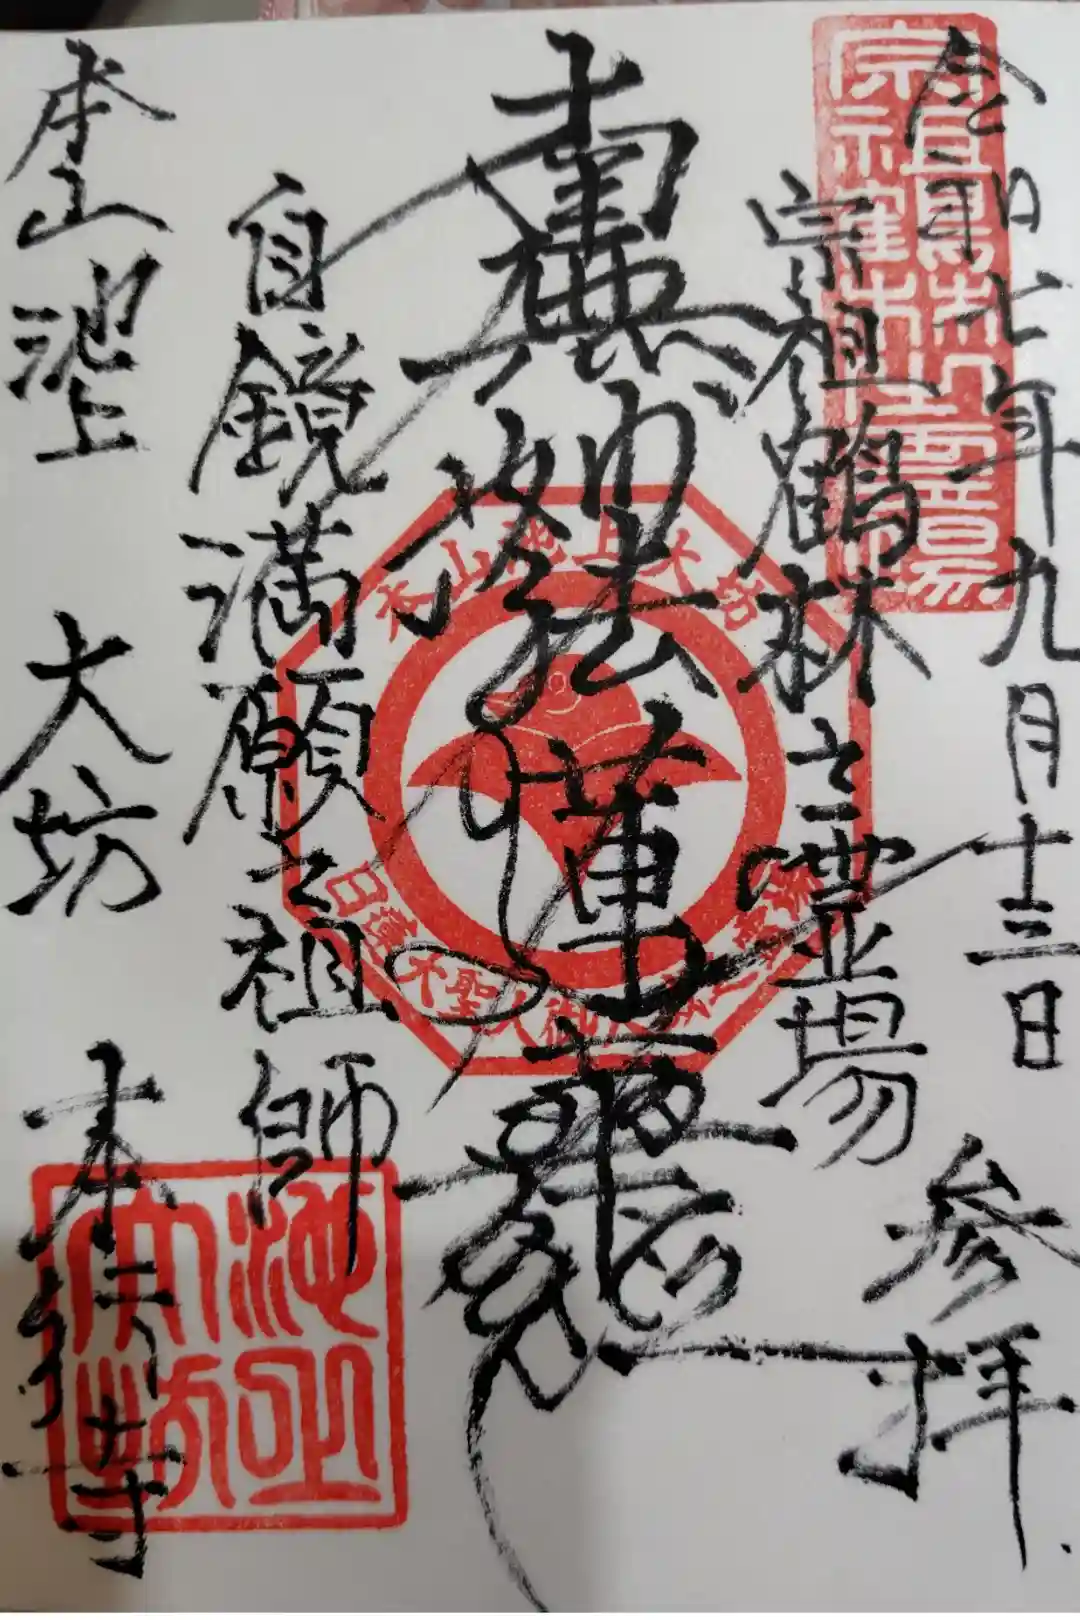 令和七年九月十三日 参拝
宗祖鶴林之霊場
南無妙法蓮華経
自鏡満願之祖師
本山 池上 大坊 本行寺
宗祖鶴林之霊場
本山池上大坊
日蓮大聖人御入滅之霊場
池上大坊